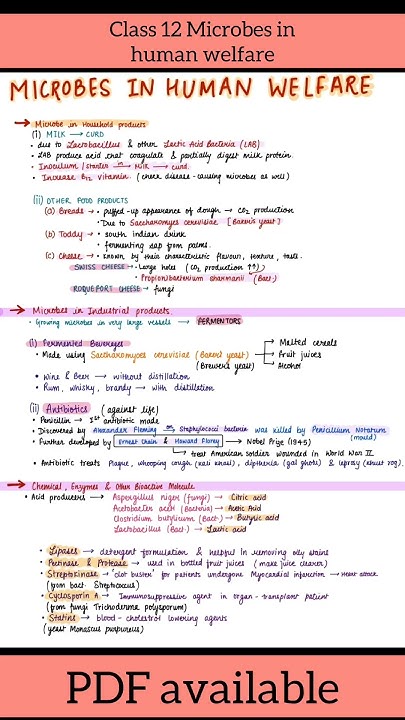 Class 12 Microbes in
human welfare
MICROBES IN HUMAN WELFARE
→ Microbe in Household products
(i) MILK → CURD
• due to Lactobacillus & other Lactic Acid Bacteria (LAB)
• LAB produce acid that coagulate & partially digest milk protein.
• Inoculum/starter in→ Milk → curd.
• Increase B12 vitamin. (check disease-causing microbes as well)
(ii) OTHER FOOD PRODUCTS
(a) Breads → • puffed-up appearance of dough → CO2 production
• Due to Saccharomyces cerevisiae [Baker's yeast]
(b) Toddy → • south indian drink
• fermenting sap from palms.
(c) Cheese → • known by their characteristic flavour, texture, taste.
SWISS CHEESE → Large holes (CO2 production ↑↑)
• Propionibacterium sharmanii (Bact.)
ROQUEFORT CHEESE → fungi
→ Microbes in Industrial products.
• Growing microbes in very large vessels → FERMENTORS
(i) Fermented Beverages
• Made using Saccharomyces cerevisiae (Baker's yeast) → Malted cereals
(Brewer's yeast) → Fruit juices
→ Alcohol
• Wine & Beer → without distillation
• Rum, whisky, brandy → with distillation
(ii) Antibiotics (against life)
• Penicillin → 1st antibiotic made
• Discovered by Alexander Fleming on→ Staphylococci bacteria was killed by Penicillium Notatum
(mould)
• Further developed by Ernest Chain & Howard Florey → Nobel Prize (1945)
→ treat American soldier wounded in World War II.
• Antibiotic treats Plague, whooping cough (kali khasi), diptheria (gal ghotu) & leprosy (kusht rog).
→ Chemical, Enzymes & Other Bioactive Molecule
• Acid producers → Aspergillus niger (fungi) → Citric acid
Acetobacter aceti (Bacteria) → Acetic Acid
Clostridium butylicum (Bact.) → Butyric acid
Lactobacillus (Bact.) → Lactic acid
• Lipases → detergent formulation & helpful in removing oily stains
• Pectinase & Protease → used in bottled fruit juices (make juice clearer)
• Streptokinase → 'clot buster' for patients undergone Myocardial infarction → Heart attack
(from bact. Streptococcus)
• Cyclosporin A → Immunosuppressive agent in organ-transplant patient
(from fungi Trichoderma polysporum)
• Statins → blood-cholestrol lowering agents
(yeast Monascus purpureus)
PDF available